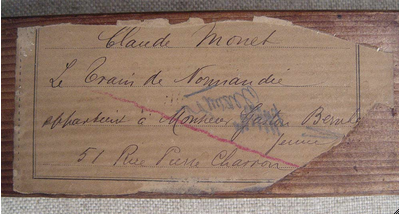 Claude Monet
Le Train de Normandie
appartient à Monsieur Gaston Bernheim
jeune
51 Rue Pierre Charron